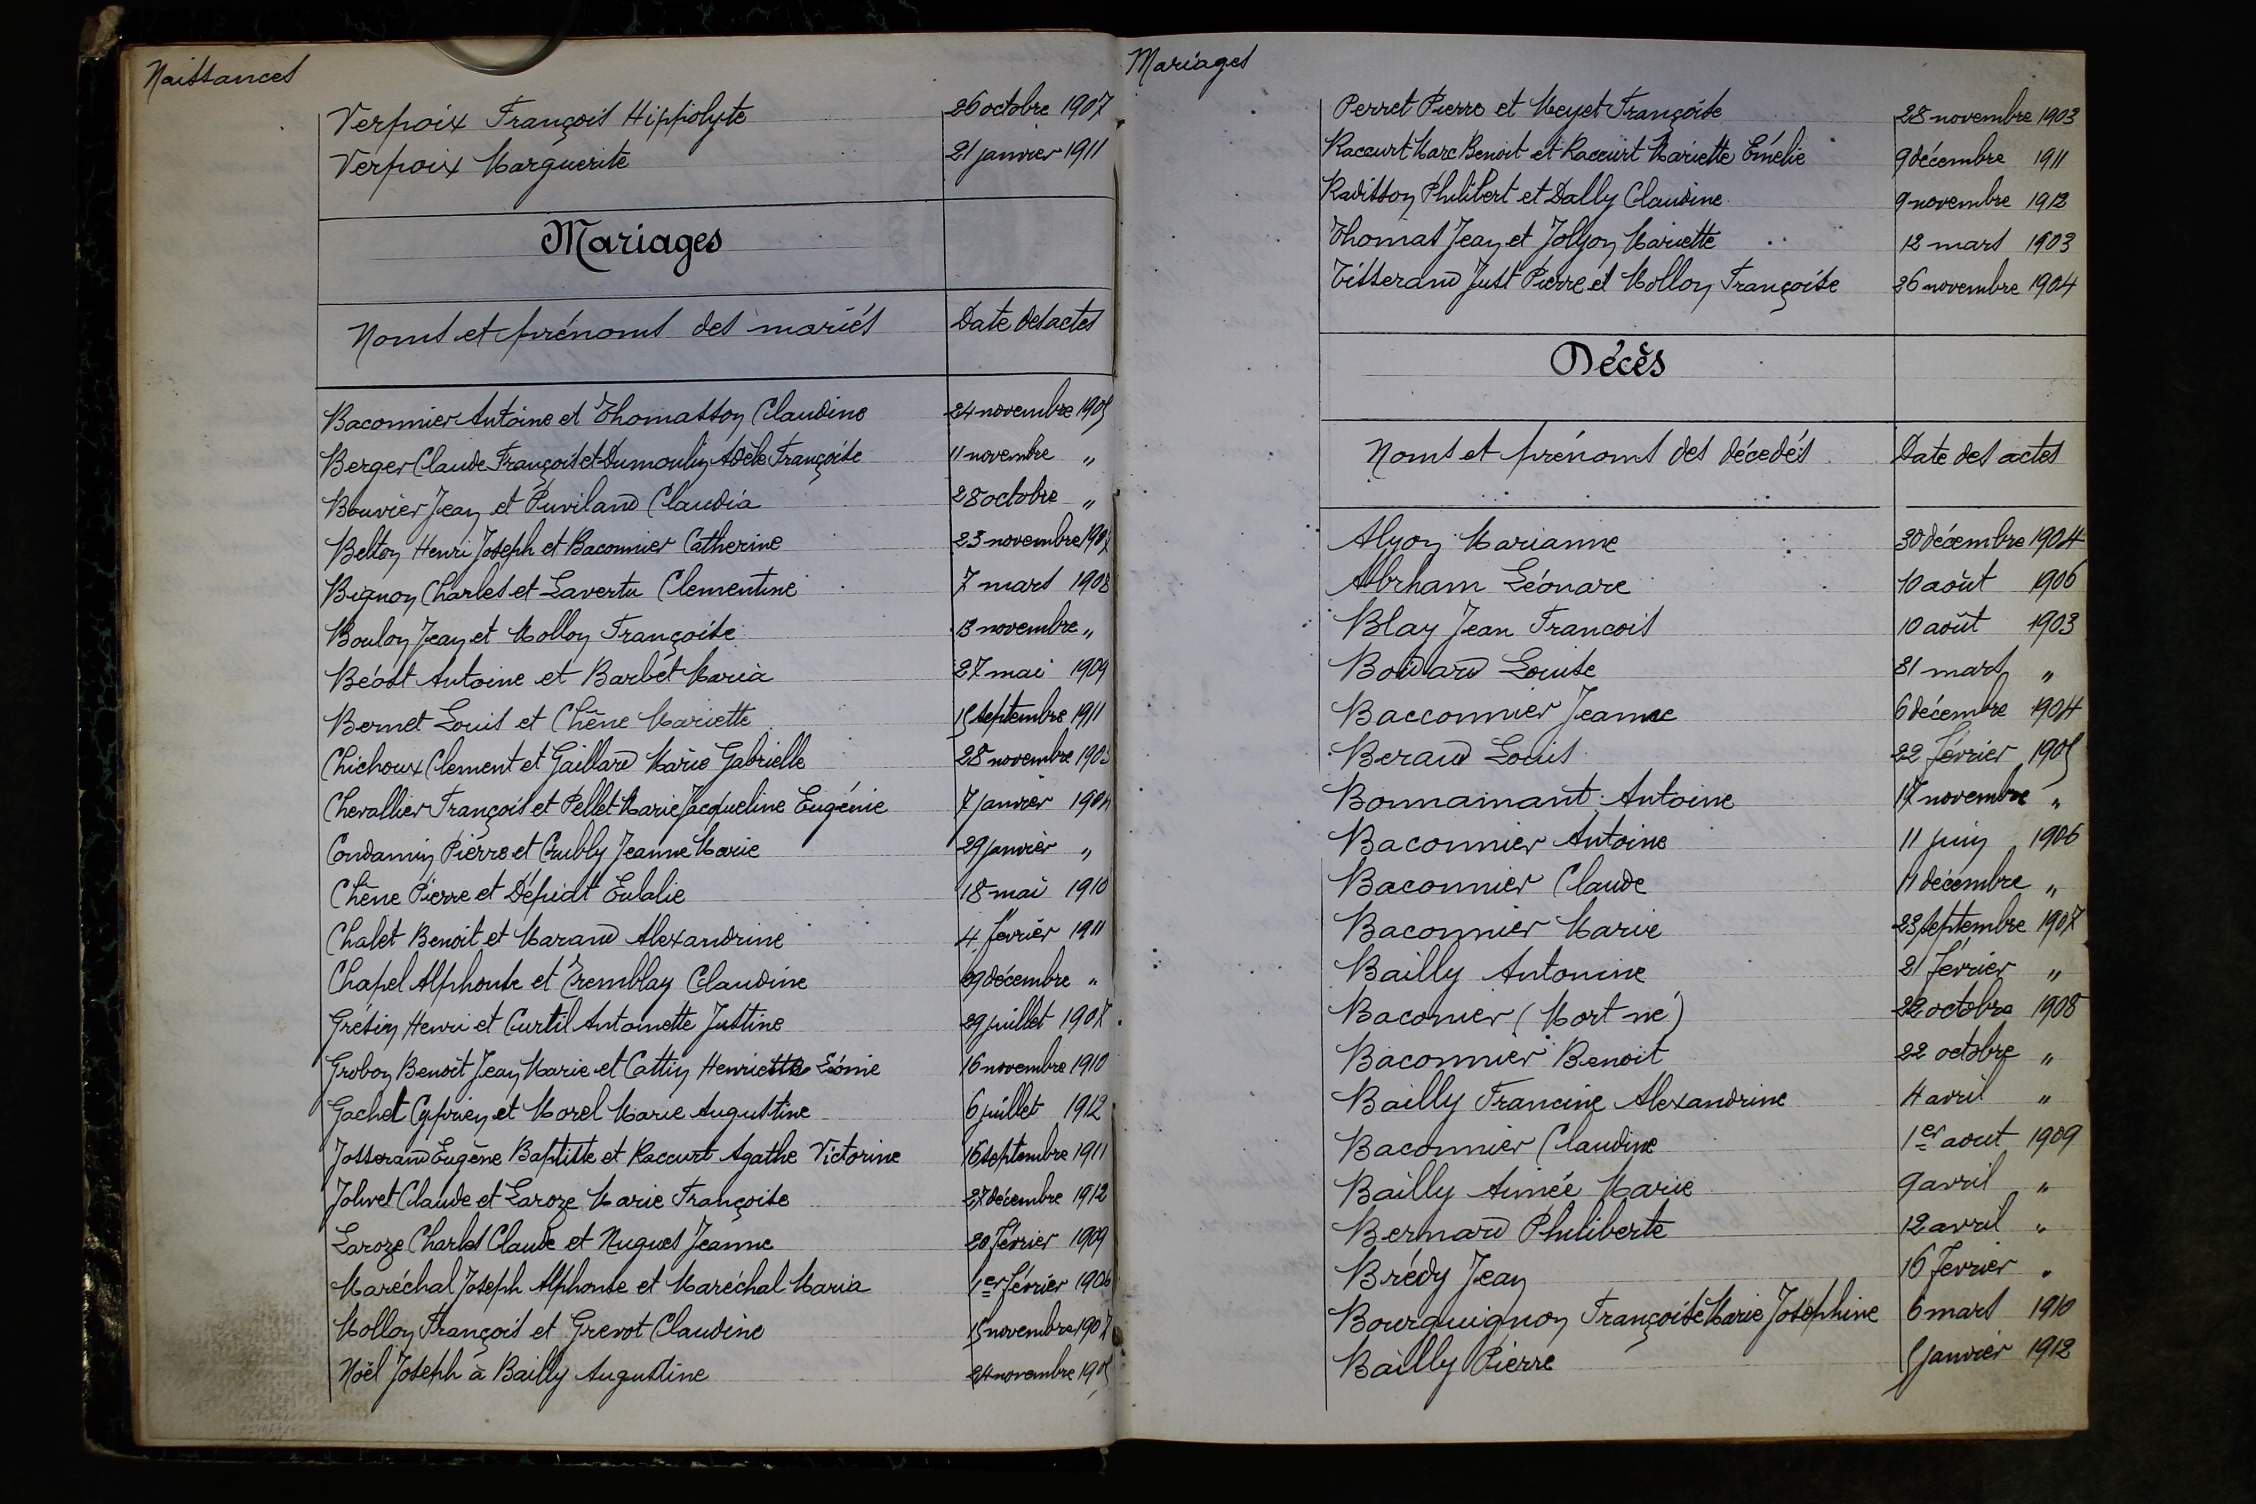 Naissances
Verpoix François Hippolyte 26 octobre 1907
Verpoix Marguerite 21 janvier 1911
Mariages
Noms et prénoms des mariés Date des actes
Baconnier Antoine et Thomasson Claudine 24 novembre 1905
Berger Claude François et Dumoulin Adèle Françoise 11 novembre "
Bouvier Jean et Puviland Claudia 28 octobre "
Belton Henri Joseph et Baconnier Catherine 23 novembre
Bignon Charles et Lavertu Clementine 7 mars 1908
Boulon Jean et Mollon Françoise 13 novembre "
Béost Antoine et Barbet Maria 27 mai 1909
Bernet Louis et Chêne Mariette 15 septembre 1911
Chichoux Clement et Gaillard Marie Gabrielle 28 novembre 1903
Chevallier François et Pellet Marie Jacqueline Eugénie 7 janvier 1904
Condamin Pierre et Jeanne Marie 29 janvier "
Chêne Pierre et Dépidt Eulalie 18 mai 1910
Chalet Benoit et Marand Alexandrine 4 février 1911
Chapel Alphonse et Tremblay Claudine décembre "
Grésin Henri et Curtil Antoinette Justine 29 juillet 1907
Grobon Benoît Jean Marie et Cattin Henriette Léonie 16 novembre 1910
Gachet Cyprien et Morel Marie Augustine 6 juillet 1912
Josserand Eugène Baptiste et Raccurt Agathe Victorine 16 septembre 1911
Jolivet Claude et Laroze Marie Françoise 27 décembre 1912
Laroze Charles Claude et Nugues Jeanne 20 février 1909
Maréchal Joseph Alphonse et Maréchal Maria 1er février 1906
Mollon François et Grevot Claudine 15 novembre 1907
Noël Joseph à Bailly Augustine 24 novembre 1905
Mariages
Perret Pierre et Meyet Françoise 28 novembre 1903
Raccurt Marc Benoit et Raccurt Mariette Emélie 9 décembre 1911
Radisson Philibert et Dally Claudine 9 novembre 1912
Thomas Jean et Jolyon Mariette 12 mars 1903
Tisserand Just Pierre et Mollon Françoise 26 novembre 1904
Décès
Noms et prénoms des décedés Date des actes
Alyon Marianne 30 décembre 1904
Abrham Léonare 10 août 1906
Blay Jean Francois 10 août 1903
Louise 31 mars "
Bacconnier Jeanne 6 décembre 1904
Beraud Louis 22 février 1905
Bonnamant Antoine 17 novembre "
Baconnier Antoine 11 juin 1906
Baconnier Claude 11 décembre "
Baconnier Marie 23 septembre 1907
Bailly Antonine 21 février "
Baconier (Mort né) 22 octobre 1908
Baconnier Benoit 22 octobre "
Bailly Francine Alexandrine 4 avril "
Baconnier Claudine 1er aout 1909
Bailly Aimée Marie 9 avril "
Bernard Philiberte 12 avril "
Brédy Jean 16 fevrier "
Bourguignon Françoise Marie Josephine 6 mars 1910
Bailly Pierre 5 janvier 1912